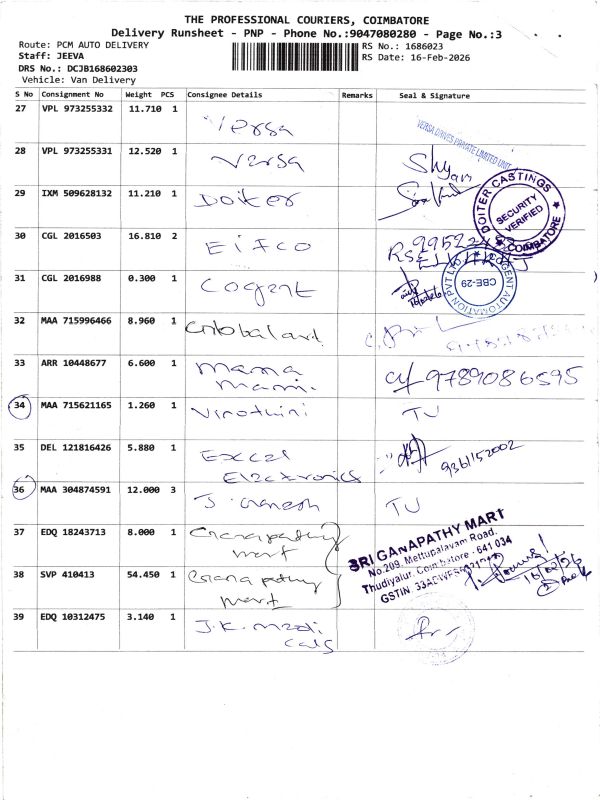 THE PROFESSIONAL COURIERS, COIMBATORE
Delivery Runsheet - PNP - Phone No.:9047080280 - Page No.:3
Route: PCM AUTO DELIVERY
RS No.: 1686023
Staff: JEEVA
RS Date: 16-Feb-2026
DRS No.: DCJB168602303
Vehicle: Van Delivery
S No Consignment No Weight PCS Consignee Details Remarks Seal & Signature
27 VPL 973255332 11.710 1 Versa
VERSA DRIVES PRIVATE LIMITED UNIT
28 VPL 973255331 12.520 1 Versa
29 IXM 509628132 11.210 1 Doiter
DOITER CASTINGS
SECURITY
VERIFIED
COIMBATORE
30 CGL 2016503 16.810 2
31 CGL 2016988 0.300 1 Cogent
COGENT AUTOMATION PVT LTD
CBE-29
32 MAA 715996466 8.960 1
33 ARR 10448677 6.600 1 mama
mami.
9789086595
34 MAA 715621165 1.260 1 TJ
35 DEL 121816426 5.880 1 Excel
Electronics
9361152002
36 MAA 304874591 12.000 3 J. Ganesh TJ
37 EDQ 18243713 8.000 1 Ganapathy
mart
SRI GANAPATHY MART
No.209, Mettupalayam Road,
Thudiyalur, Coimbatore - 641 034
GSTIN
16/02/26
38 SVP 410413 54.450 1 Ganapathy
mart
39 EDQ 10312475 3.140 1 J.K. medi